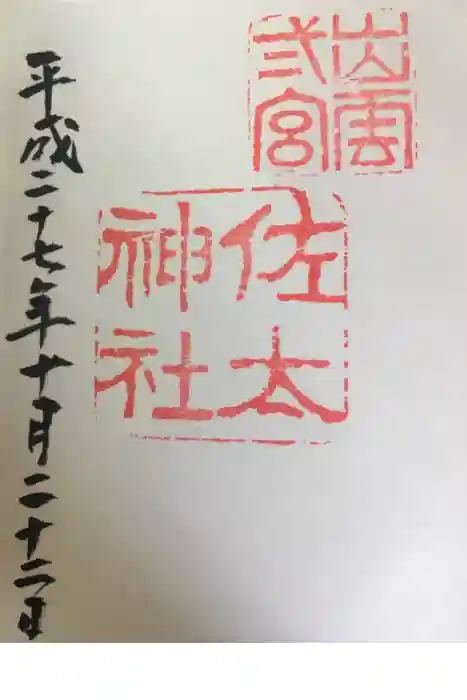 出雲
弐宮
佐太
神社
平成二十七年十月二十二日